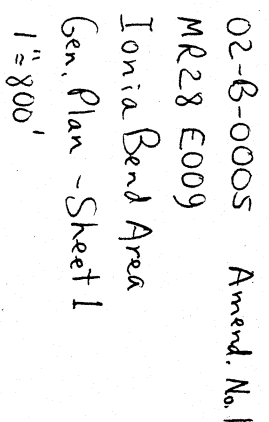 02-B-0005 Amend. No. 1
MR28 E009
Ionia Bend Area
Gen. Plan - Sheet 1
1" = 800'